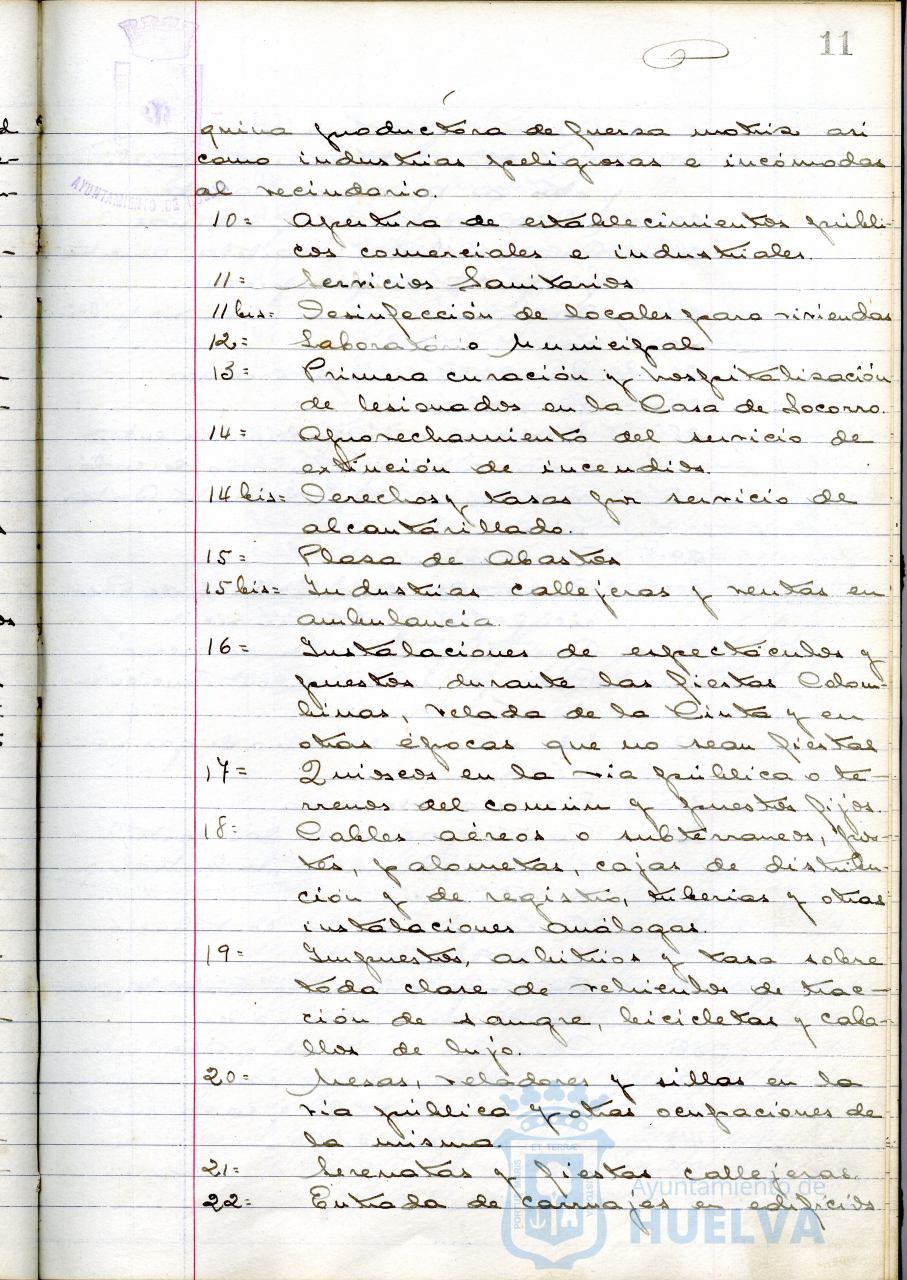 11
quina productora de fuersa motris así
como industrias peligrosas e incómodas
al vecindario.
10= Apertura de establecimientos públi-
cos comerciales e industriales.
11= Servicios Sanitarios
11 bis= Desinfección de locales para viviendas
12= Laboratorio Municipal
13= Primera curación y hospitalisación
de lesionados en la Casa de Socorro.
14= Aprovechamiento del servicio de
extinción de incendios.
14 bis= Derechos y tasas por servicio de
alcantarillado.
15= Plasa de Abastos
15 bis= Industrias callejeras y ventas en
ambulancia.
16= Instalaciones de espectáculos y
puestos durante las fiestas Colom-
binas, velada de la Cinta y en
otras épocas que no sean fiestas
17= Quioscos en la via pública o te-
rrenos del común y puestos fijos.
18= Cables aéreos o subterraneos, pos-
tes, palometas, cajas de distribu-
ción y de registro, tuberias y otras
instalaciones análogas.
19= Impuestos, arbitrios y tasa sobre
toda clase de vehiculos de trac-
ción de sangre, bicicletas y caba-
llos de lujo.
20= Mesas, veladores y sillas en la
via pública y otras ocupaciones de
la misma.
21= Serenatas y fiestas callejeras.
22= Entrada de carruajes en edificios
AYUNTAMIENTO DE
ET TERRAE
Ayuntamiento de
HUELVA